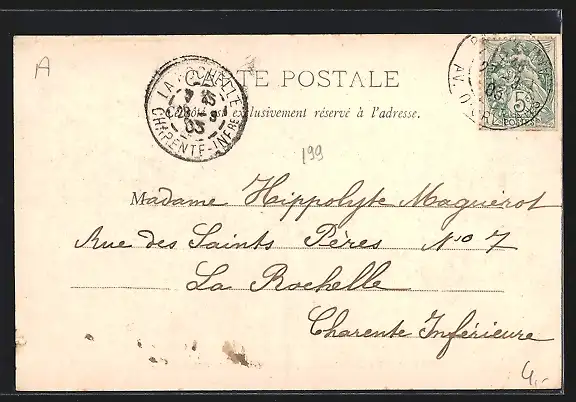 A
CARTE POSTALE
Ce côté est exclusivement réservé à l'adresse.
LA ROCHELLE
7 45
28 - 9
03
CHARENTE-INFRE
5
199
Madame Hippolyte Maguérot
Rue des Saints Pères No 7
La Rochelle
Charente Inférieure
4,-